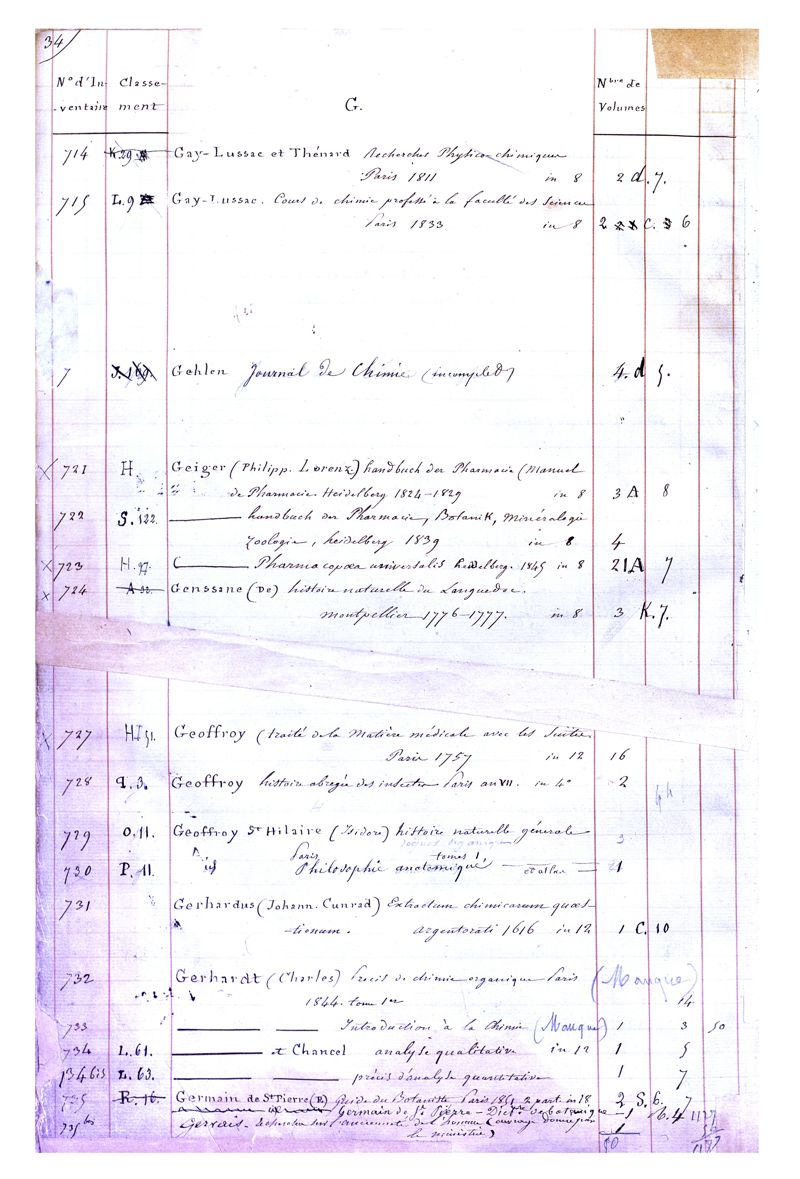 34
N° d'In- Classe- G. Nbre de
-ventaire ment Volumes
714 K.29. Gay-Lussac et Thénard Recherches Physico-chimiques
Paris 1811 in 8 2 d. 7.
715 L.9 Gay-Lussac. Cours de chimie professé à la faculté des Sciences
Paris 1833 in 8 2 C. 6
7 J.169. Gehlen Journal de Chimie (incomplet) 4. d 5.
721 H. Geiger (Philipp. Lorenz.) handbuch der Pharmacie (Manuel
de Pharmacie. Heidelberg 1824-1829 in 8 3 A 8
722 S.122. handbuch der Pharmacie, Botanik, Minéralogie
Zoologie, heidelberg 1839 in 8 4
723 H.97. Pharmacopœa universalis heidelberg. 1845 in 8 2 A 7
724 A Genssane (De) histoire naturelle du Languedoc.
montpellier 1776-1777. in 8 3 K. 7.
727 H 51. Geoffroy (traité de la Matière médicale avec les Suites
Paris 1757 in 12 16
728 q.3. Geoffroy histoire abregée des insectes Paris an VII. in 4° 2
729 O.11. Geoffroy St Hilaire (Isidore) histoire naturelle générale 3
Paris tomes 1,
730 P.11. id Philosophie anatomique et atlas 1
731 Gerhardus (Johann. Cunrad) Extractum chimicarum quæs-
-tionum. Argentorati 1616 in 12 1 C. 10
732 Gerhardt (Charles) Précis de chimie organique Paris (Manque)
1844. tom 1er 14
733 Introduction à la Chimie (Manque) 1 3 50
734 L.61. et Chancel analyse qualitative in 12 1 5
734 bis L.63. précis d'analyse quantitative 1 7
735 R.16. Germain de St Pierre (E) Guide du Botaniste Paris 1851 2 part. in 18 2 S. 6. 7
Germain de St Pierre - Dictre de botanique 1 6.4
735 bis Gervais. Recherches sur l'ancienneté de l'homme (ouvrage donné par 1
le ministère) 50